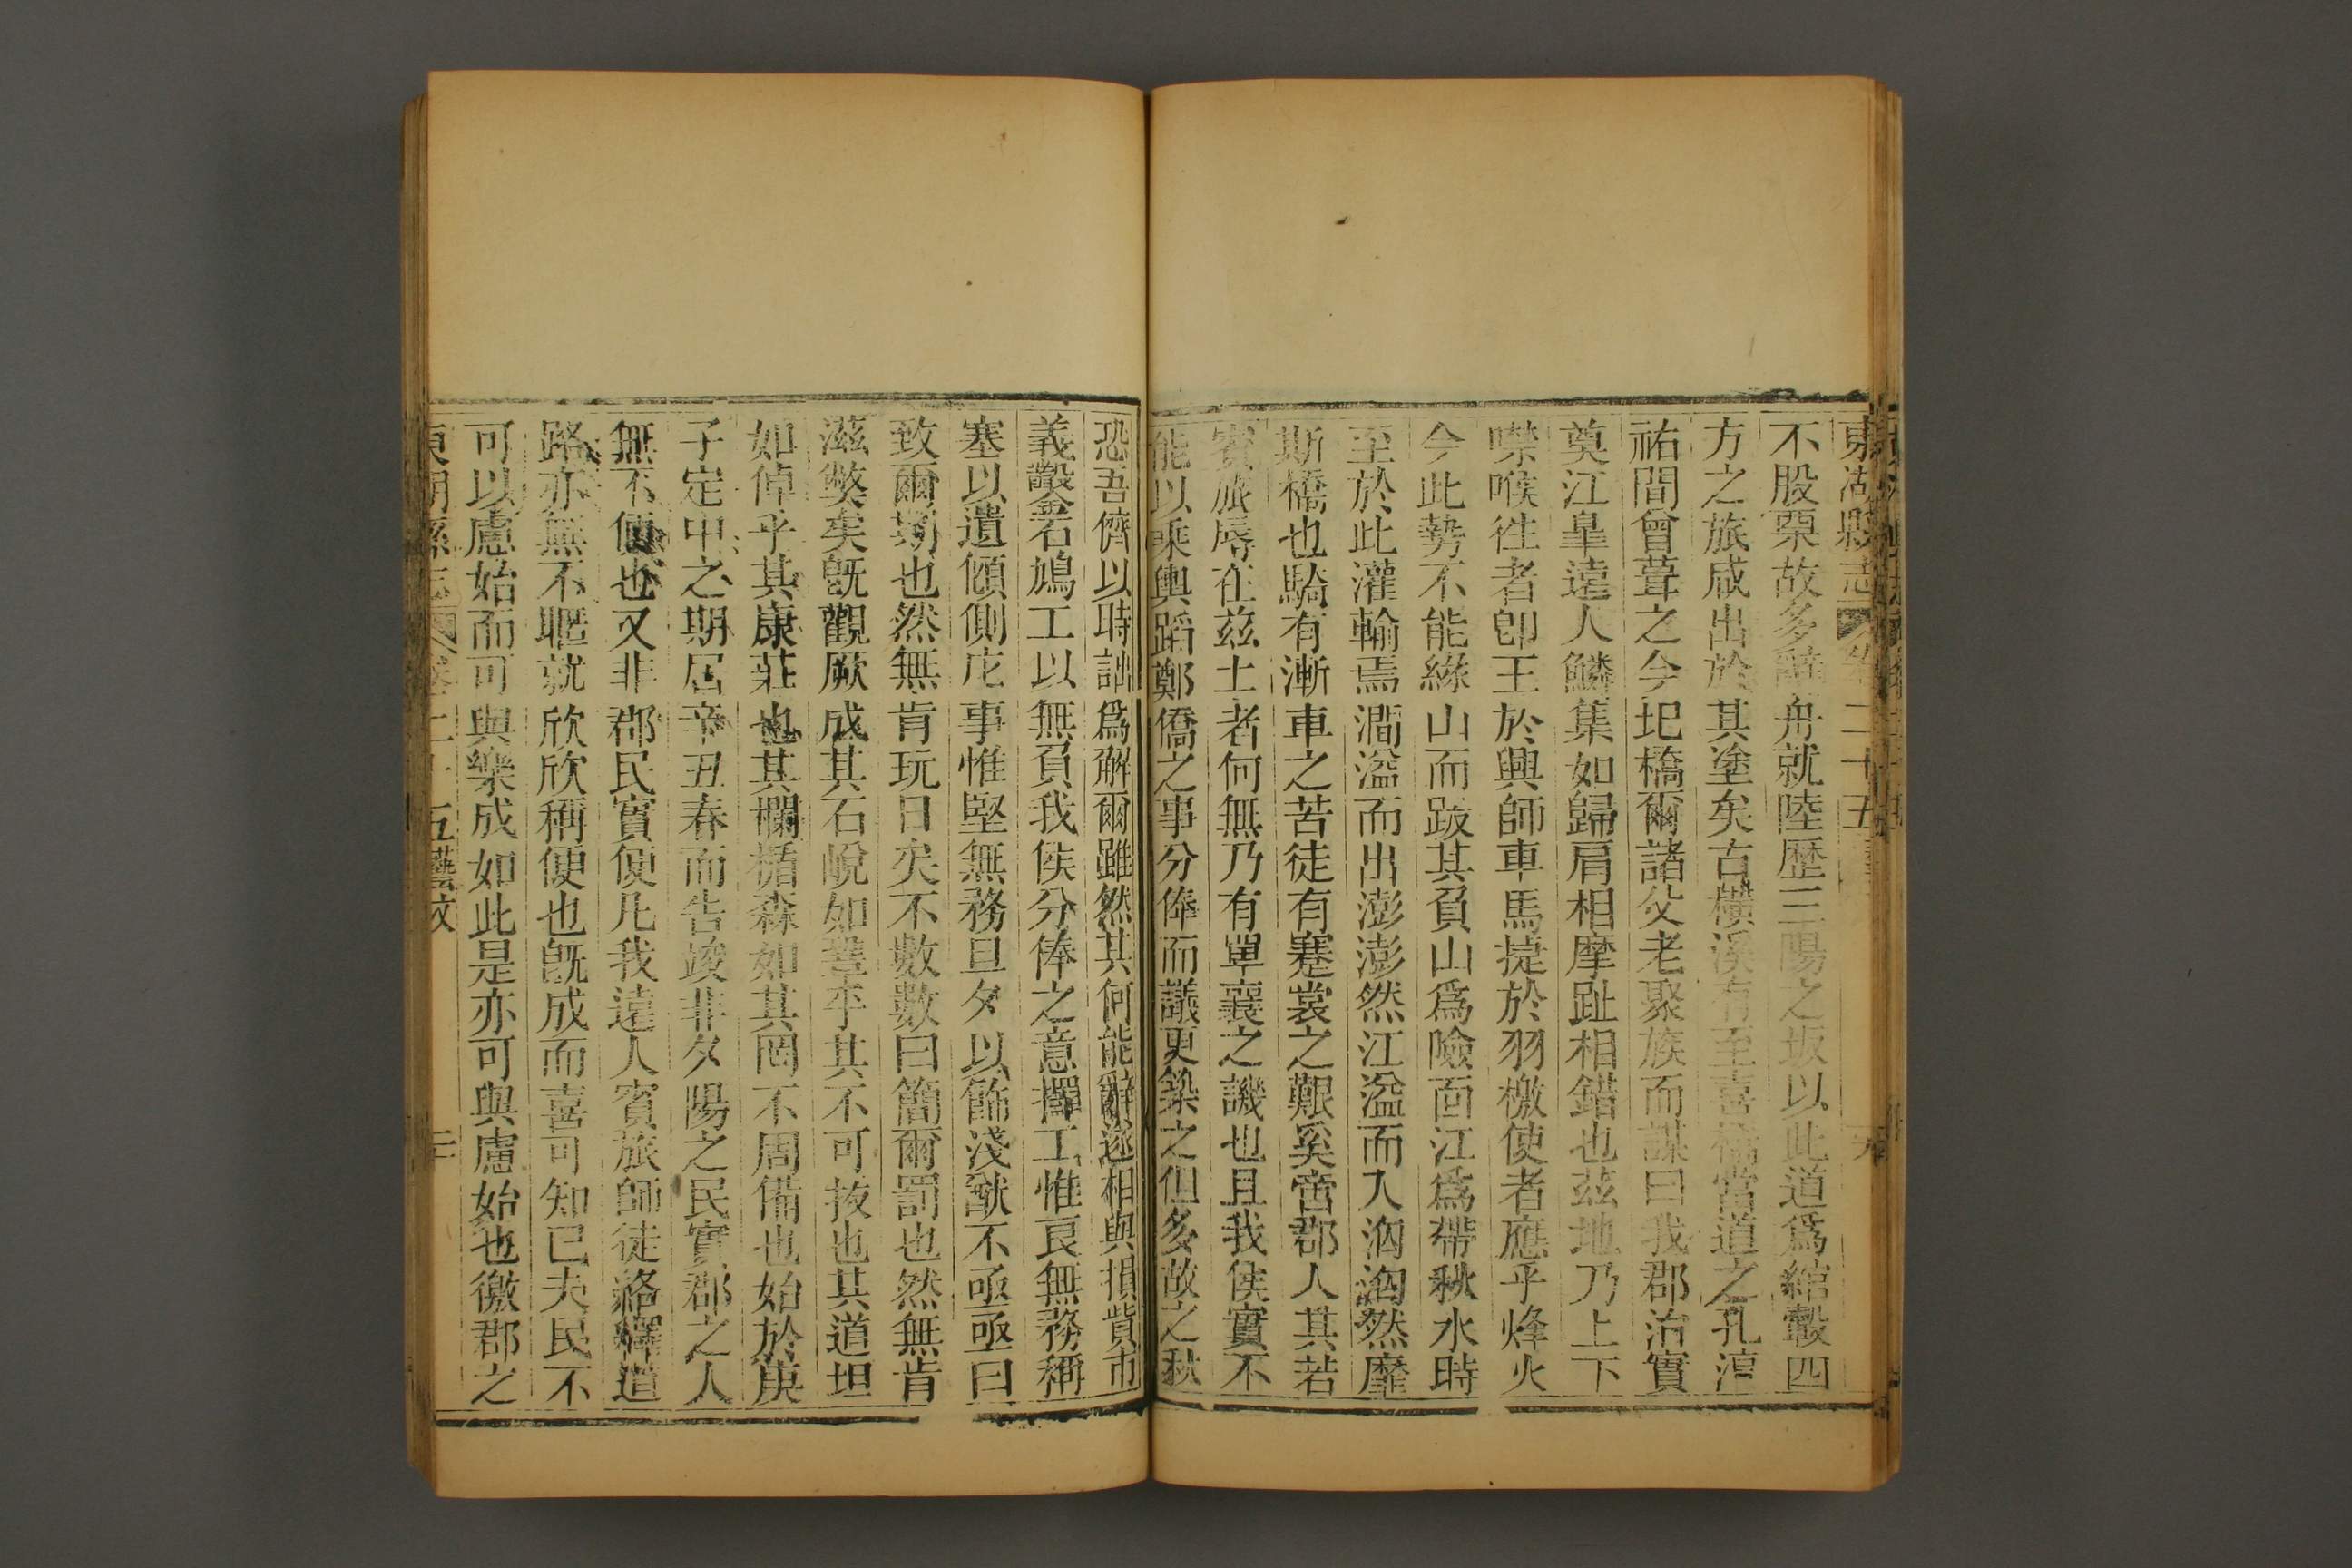 東湖縣志 卷二十五
不股栗故多辭舟就陸歷三陽之坂以此道爲綰轂四
方之旅咸出於其塗矣古橫溪有至喜橋當道之孔渟
祐間曾葺之今圯橋爾諸父老聚族而謀曰我郡治實
奠江臯遠人鱗集如歸肩相摩趾相錯也茲地乃上下
噤喉徃者卽王於興師車馬㨗於羽檄使者應乎烽火
今此勢不能緣山而跋其負山爲險面江爲帶秋水時
至於此灌輸焉澗溢而出澎澎然江溢而入洶洶然靡
斯橋也騎有漸車之苦徒有蹇裳之艱奚啻郡人其若
賓旅辱在茲土者何無乃有單襄之譏也且我侯實不
能以乘輿蹈鄭僑之事分俸而議更築之但多故之秋
恐吾儕以時詘爲解爾雖然其何能辭遂相與損貲市
義鑿金石鳩工以無負我侯分俸之意擇工惟良無務稱
塞以遺傾側庀事惟堅無務旦夕以飾淺猷不亟亟曰
致爾期也然無肯玩日矣不數數曰簡爾罰也然無肯
滋獘矣旣觀厥成其石帨如鞏乎其不可拔也其道坦
如倬乎其康莊也其欄楯森如其罔不周備也始於庚
子定中之期居辛丑春而告竣非夕陽之民實郡之人
無不便也又非郡民實便凡我遠人賓旅師徒絡繹道
路亦無不驅就欣欣稱便也旣成而喜可知已夫民不
可以慮始而可與樂成如此是亦可與慮始也徼郡之
東湖縣志 卷二十五藝文 二